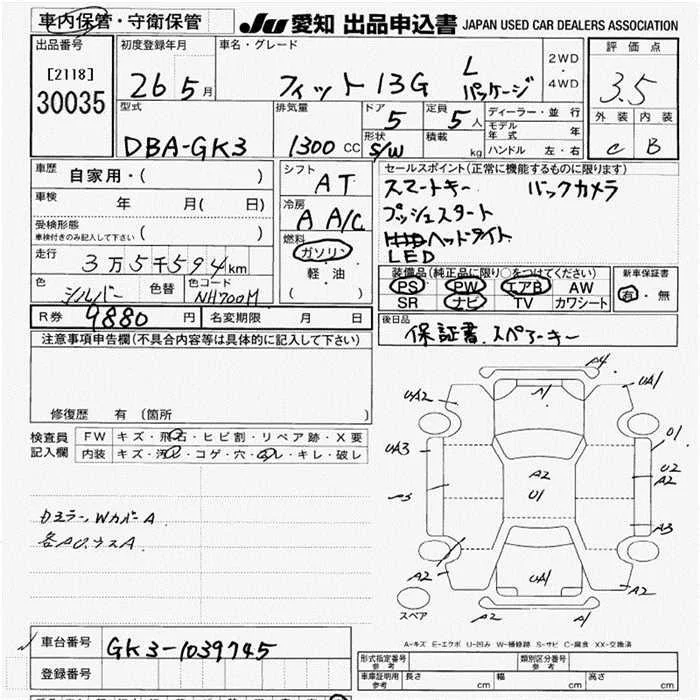 車内保管・守衛保管 JU 愛知 出品申込書 JAPAN USED CAR DEALERS ASSOCIATION
出品番号 [2118] 30035
初度登録年月 26 5月
車名・グレード フィット 13G L パッケージ
2WD・4WD
評価点 3.5
外装 内装
C B
型式 DBA-GK3
排気量 1300 CC
ドア 5 定員 5人
形状 S/W 積載 kg
ディーラー・並行
モデル年式 年
ハンドル 左・右
車歴 自家用・( )
車検 年 月( 日)
受検形態
車検付きのみ記入して下さい ( )
走行 3万5千594km
色 シルバー 色替 色コード NH700M
シフト AT
冷房 A A/C
燃料 ガソリン
軽・油
( )
セールスポイント(正常に機能するものに限ります)
スマートキー バックカメラ
プッシュスタート
ヘッドライト
LED
装備品(純正品に限り○をつけてください)
PS PW エアB AW
SR ナビ TV カワシート
新車保証書
有・無
R券 9880 円 名変期限 月 日
後日品
保証書、スペアーキー
注意事項申告欄(不具合内容等は具体的に記入して下さい)
修復歴 有 (箇所 )
検査員記入欄
FW キズ・飛石・ヒビ割・リペア跡・X要
内装 キズ・汚れ・コゲ・穴・スレ・キレ・破レ
A4
UA2 A1 UA1
UA3 U1
A2 U2
A2
A3 U1
A3
A2 UA1 A2
A2 A1
スペア
A-キズ E-エクボ U-凹み W-補修跡 S-サビ C-腐食 XX-交換済
車台番号 GK3-1039745
登録番号
形式指定番号 参考 類別区分番号 参考
車庫証明用 参考 長さ cm 幅 cm 高さ cm